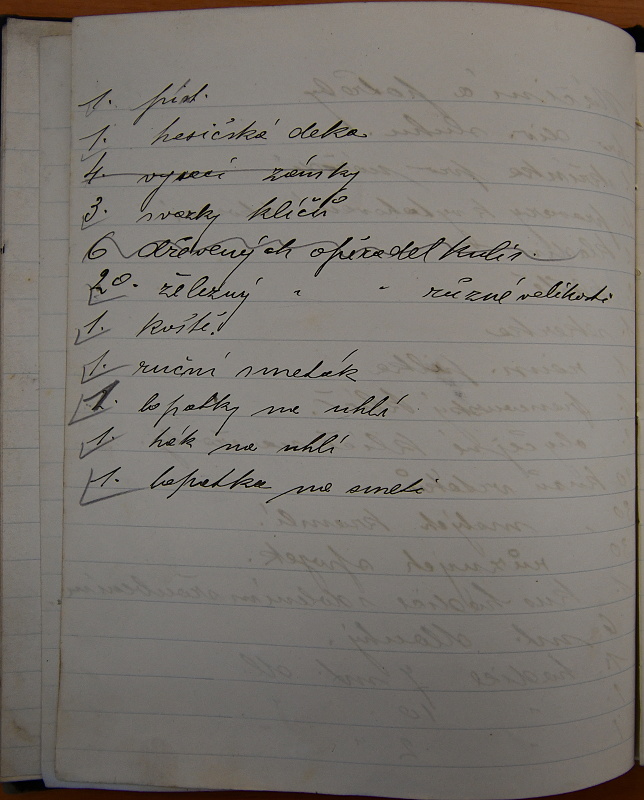 1. píst.
1. hasičská deka
4. vysací zámky
3. svazky klíčů
6 dřevěných opěradel kulis.
20. železný " " různé velikosti
1. koště.
1. ruční smeták
1. lopatky na uhlí.
1. hák na uhlí
1. lopatka na smetí